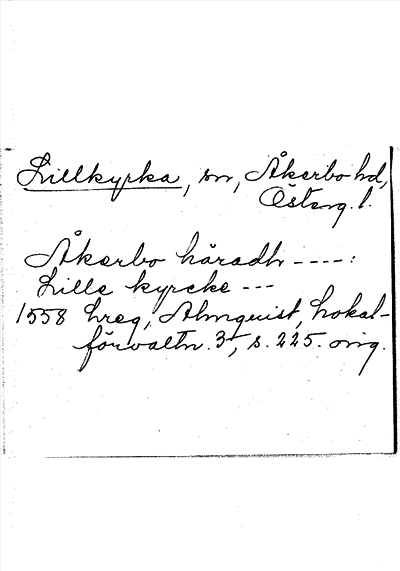 Lillkyrka, sn, Åkerbo hd,
Österg. l.
Åkerbo häradh ----:
Lille kyrcke ---
1558 Lreg, Almquist, Lokal-
förvaltn. 3, s. 225. orig.